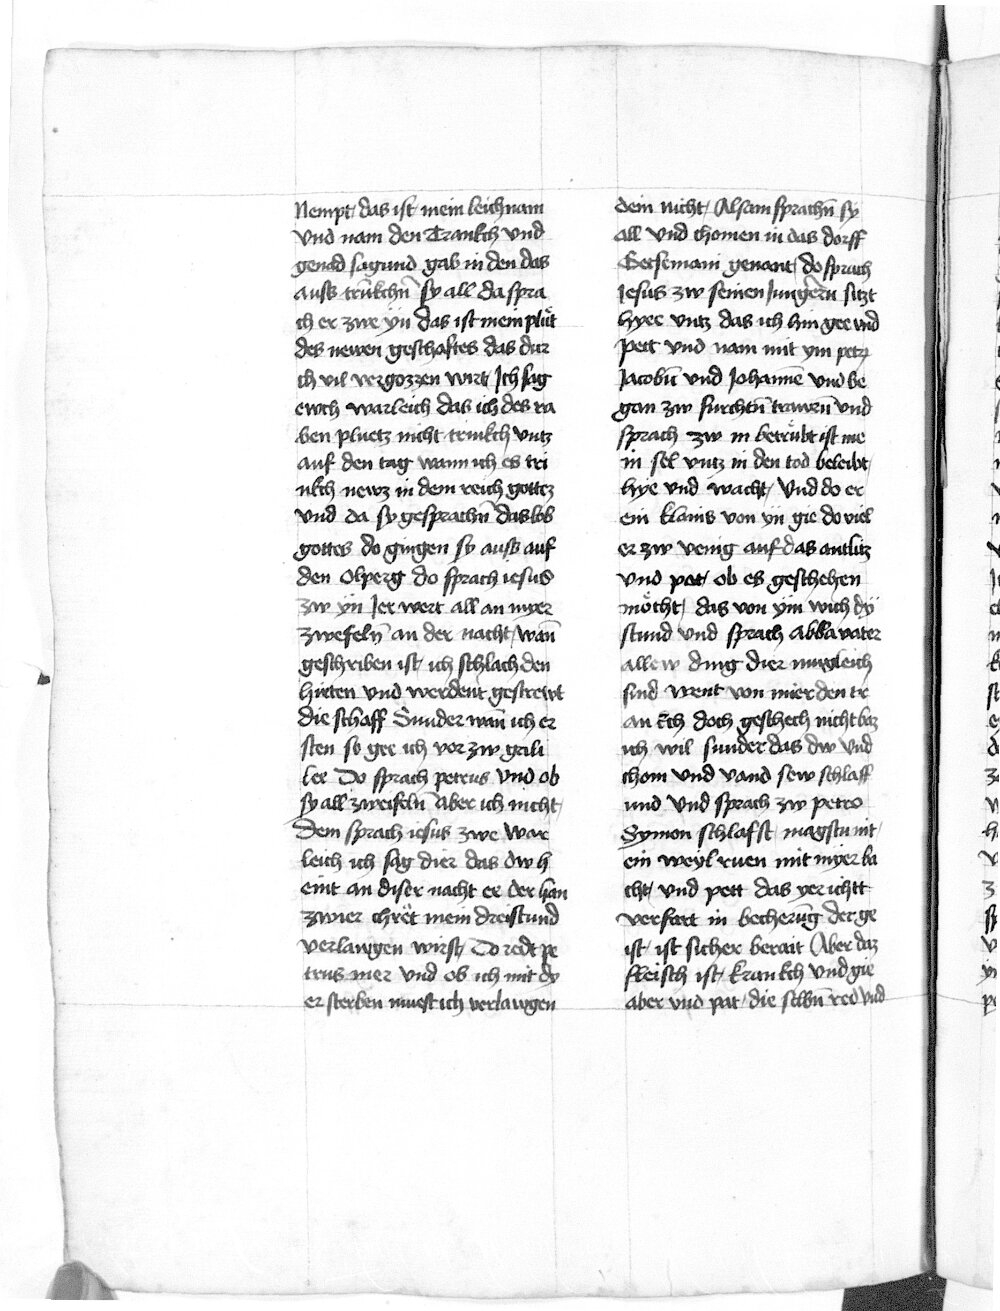 Nempt / das ist mein leichnam
Vnd nam den Trankch vnd
genad sagund gab in den das
auss trūkchn̄ sy all da spra
ch er zwe yn̄ das ist mein plůt
des newen geschaftes das dur
ch vil vergozzen wirt / Ich sag
ewch warleich das ich des ra
ben pluetz nicht trinkch vntz
auf den tag wann ich es tri
nkch newz in dem reich gottez
vnd da sy gesprachn̄ das lob
gottes do gingen sy auss auf
den Olperg do sprach iesus
zw yn̄ Jer wert all an myer
zwefeln̄ an der nacht / wan̄
geschriben ist / ich schlach den
hirten vnd werdent gestrewt
die schaff Sunder wan̄ ich er
sten so gee ich vor zw galli
lee Do sprach petrus vnd ob
sy all zweifeln̄ aber ich nicht /
Dem sprach iesus zwe War
leich ich sag dier das dw h
eint an diser nacht ee der han
zwier chrět mein dreistund
verlaugen wirst / Do redt pe
trus mer vnd ob ich mit dy
er sterben muest ich verlawgen
dein nicht / Alsam sprachn̄ sy
all vnd chomen in das dorff
Getsemani genant / do sprach
Jesus zw seinen Jungern sitzt
hyee vntz das ich hin gee vnd
pett vnd nam mit ym petr
Jacobū vnd Johannē vnd be
gan zw furchtn̄ trawrn̄ vnd
sprach zw in betrůbt ist me
in sel vntz in den tod beleibt /
hye vnd wacht / Vnd do er
ein klains von yn̄ gie do viel
er zw venig auf das antlitz
vnd pat / ob es geschehen
mǒcht / das von ym wich dy
stund vnd sprach abba vater
allew ding dier mugleich
sind went von mier den tr
an kch doch geschech nicht baz
ich wil sunder das dw Vnd
chom vnd vand sew schlaff
und vnd sprach zw petro
Symon schlafst magstu nit /
ein weyl ruen mit myer ba
cht / vnd pett das yer ichtt
verfart in becherūg der ge
ist / ist sicher berait Aber daz
fleisch ist krankch vnd gie
aber vnd pat / die selbn̄ red vnd